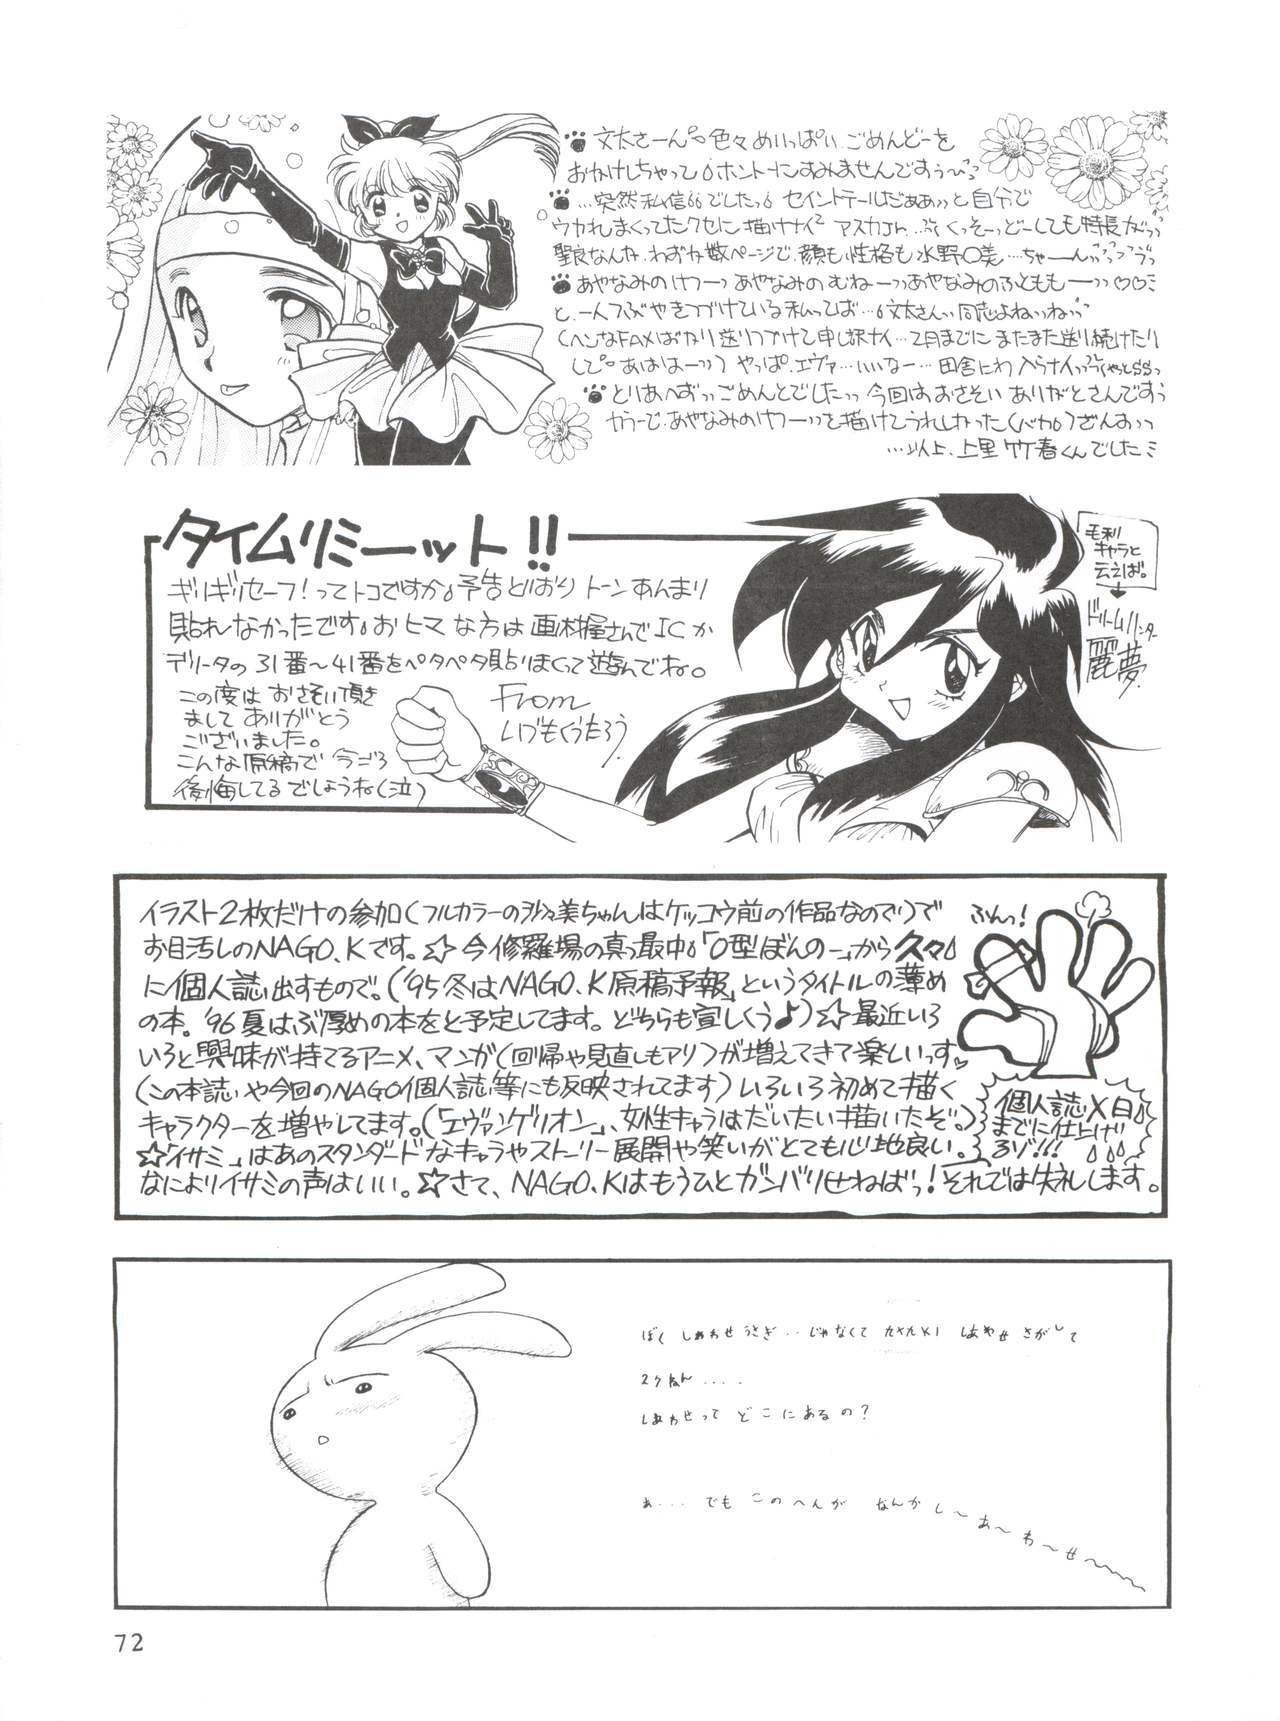 文太さーん 色々めいっぱい.ごめんどーを
おかけしちゃって ホントーにすみませんですぅ〜
…突然私信でした セイントテールだぁぁっと自分で
ウカれまくってたクセに描けナイ² アスカJr. …ぶくくっそーっどーしても特長が
聖良なんか.わずか数ページで.顔も性格も水野○美…ちゃーん
あやなみのけつーっ あやなみのむねーっっあやなみのふとももーっっ♡♡
と.一人つぶやきつづけている私ってば… 文太さんっ同志よねっねっ
(ヘンなFAXばかり送りつけて申し訳ナイ…2月までに またまた送り続けたり
して あはは―っ) やっぱ.エヴァ…いいなー… 田舎にわ入らナイっ
とりあへずっっごめんとでしたっ 今回はおさそい ありがとさんですぅ
あやなみのけつーっっを描けてうれしかった(バカ) ざんすっ
…以上.上里竹春くんでした
タイムリミーット!!
ギリギリセーフ!ってトコですか 予告どおり トーンあんまり
貼れなかったです おヒマな方は画材屋さんでICか
デリータの31番〜41番をペタペタ貼りまくって遊んでね。
この度は おさそい頂き
まして ありがとう
ございました。
こんな原稿で 今ごろ
後悔してるでしょうね(泣)
From
いづもくうたろう
毛利
キャラと
云えば。
ドリームハンター
麗夢
イラスト2枚だけの参加(フルカラーの沙々美ちゃんはケッコウ前の作品なので!)で
お目汚しのNAGO.Kです。☆ 今修羅場の真っ最中「O型ぼんのー」から久々
に個人誌出すもので。('95冬は「NAGO.K原稿予報」というタイトルの薄め
の本。'96夏はぶ厚めの本をと予定してます。どちらも宜しくぅ♪) ☆最近いろ
いろと興味が持てるアニメ、マンガ(回帰や見直しもアリ)が増えてきて楽しいっす♥
(この本誌や今回のNAGO個人誌等にも反映されてます)いろいろ初めて描く
キャラクターを増やしてます。(「エヴァンゲリオン」、女性キャラはだいたい描いたぞ。)
☆「イサミ」はあのスタンダードなキャラやストーリー展開や笑いがとても心地良い。
なによりイサミの声はいい。☆さて、NAGO.Kはもうひとガンバリせねばっ! それでは失礼します。
ふんっ!
個人誌X日
までに仕上げ
るゾ!!!
ぼく しあわせうさぎ・・じゃなくて TATUKI しあわせ さがして
27ねん・・・・
しあわせって どこにあるの?
あ・・・ でも このへんが なんか し〜あ〜わ〜せ〜
72